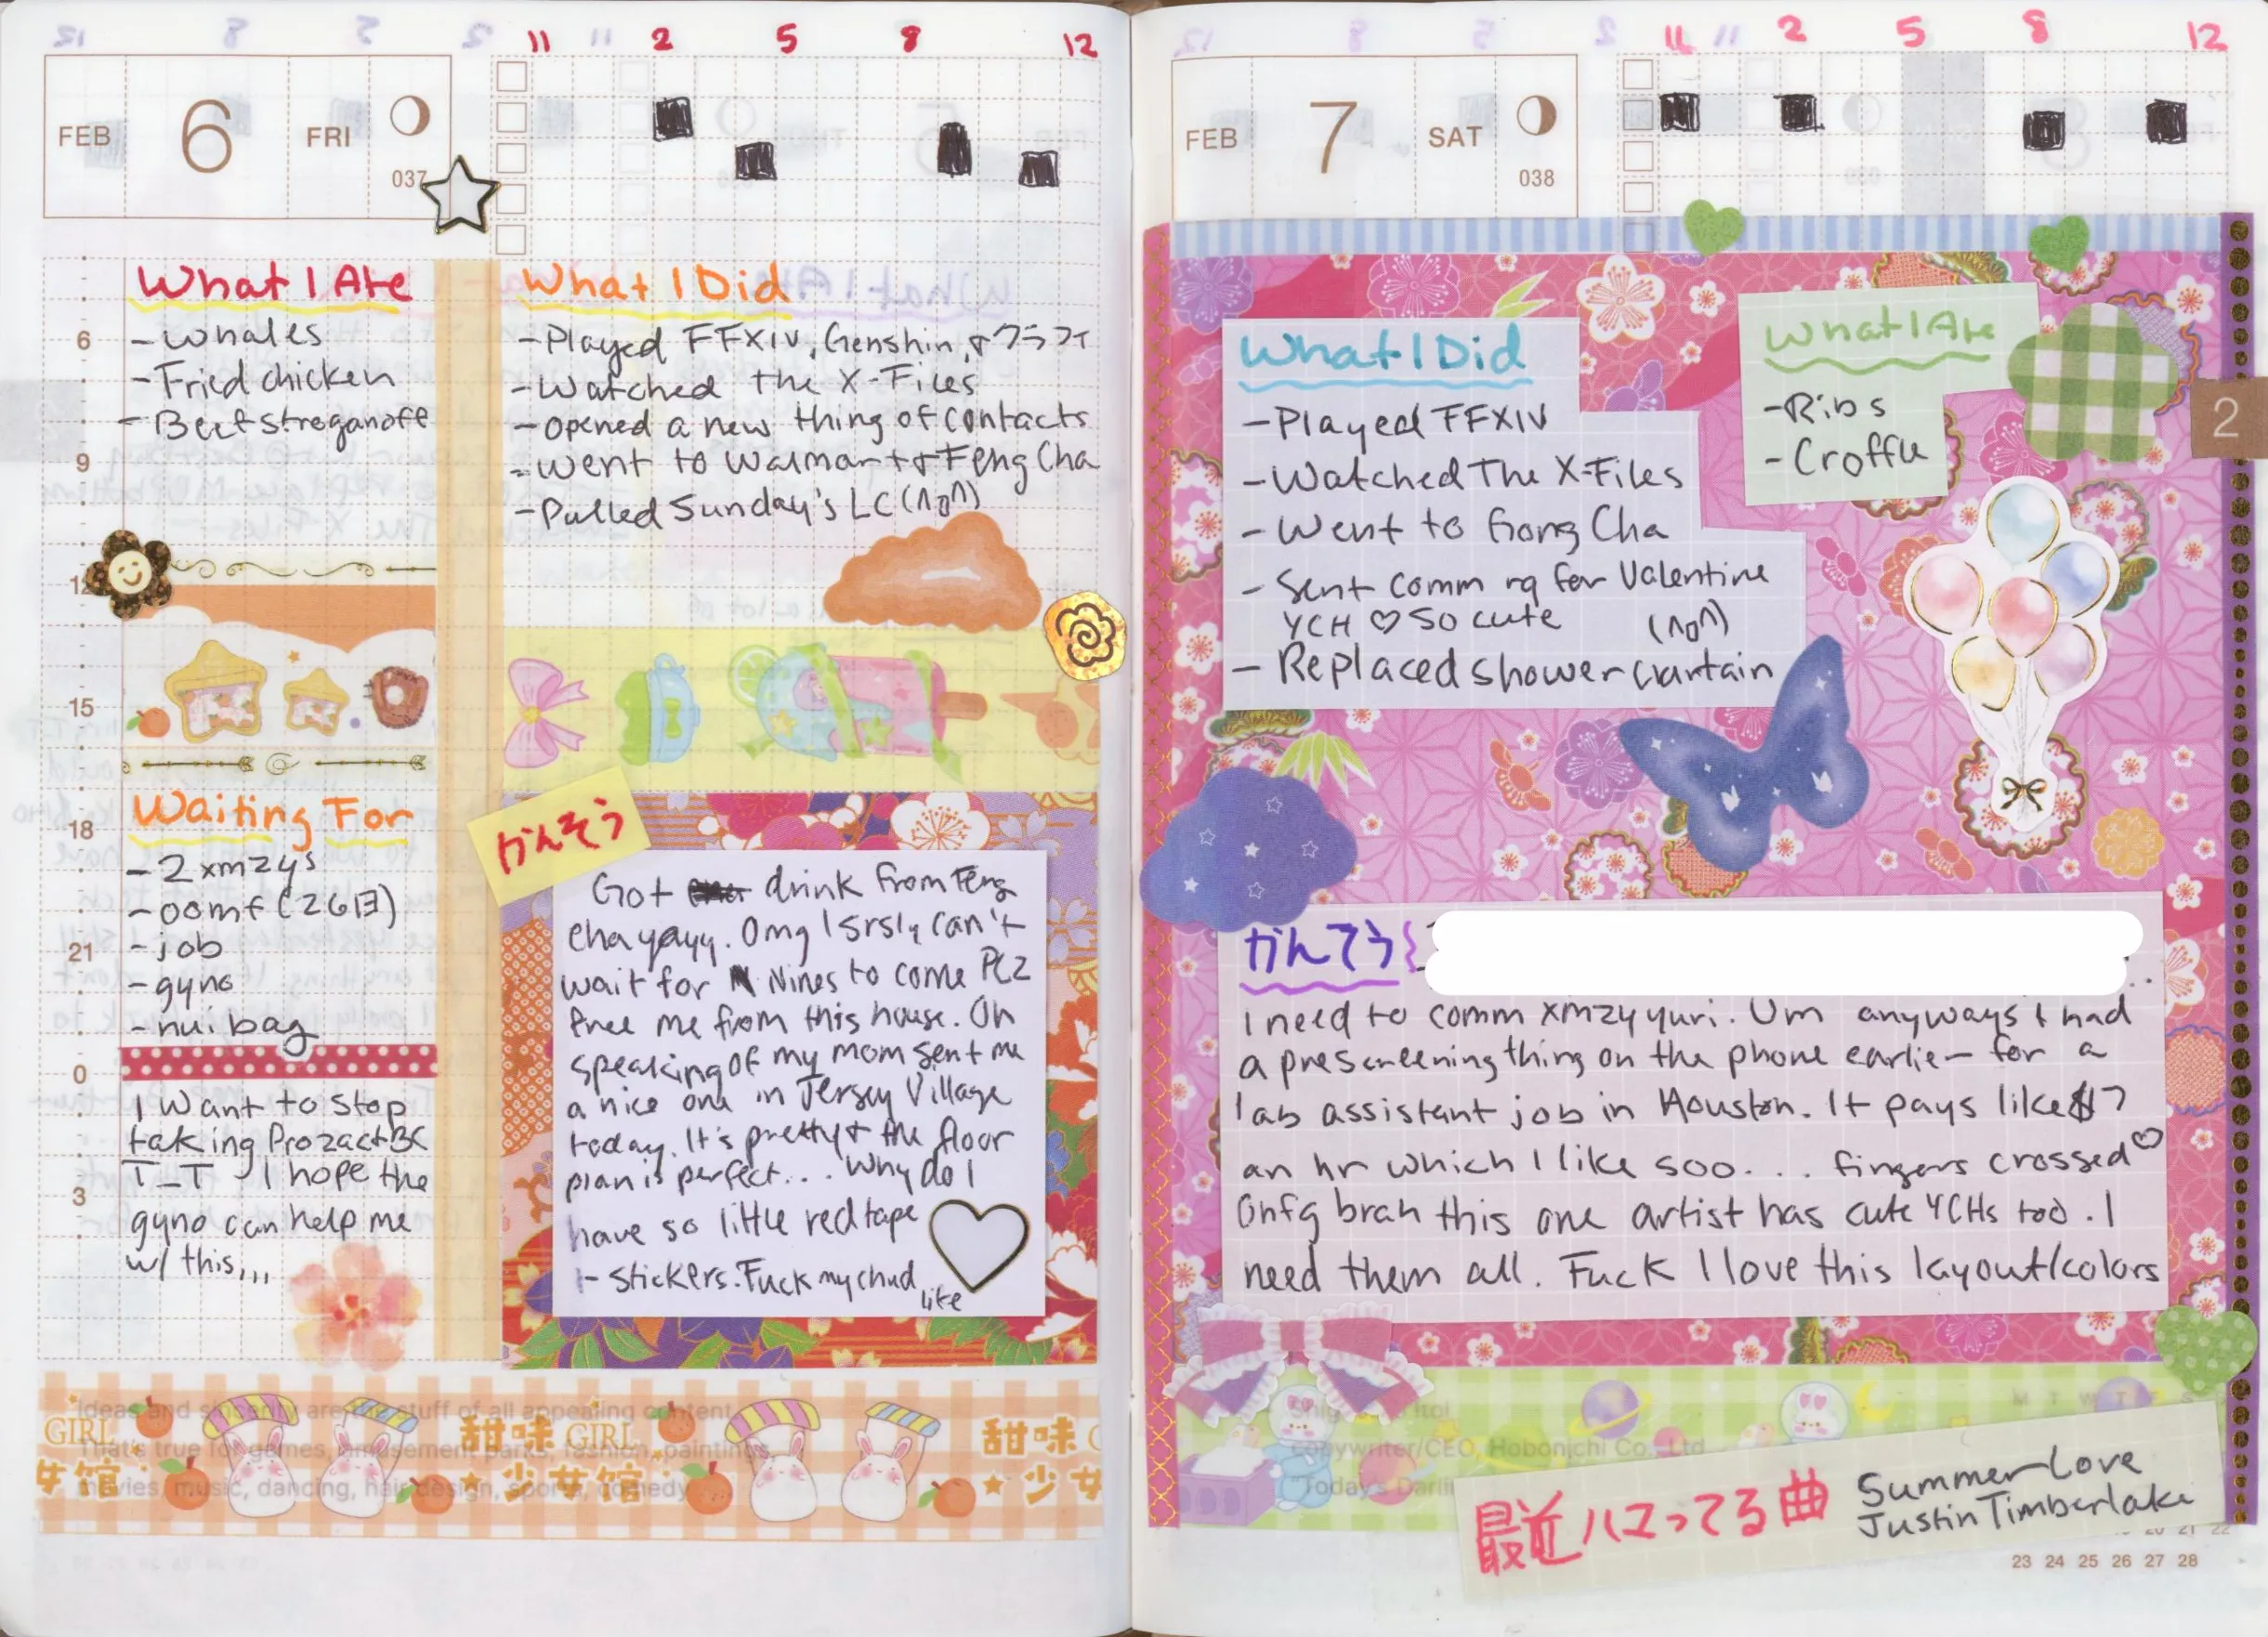 11 2 5 8 12
FEB 6 FRI
037
What I Ate
- Whales
- Fried chicken
- Beef streganoff
What I Did
- Played FFXIV, Genshin, + クラフィ
- Watched The X-Files
- Opened a new thing of contacts
- Went to Walmart + Feng Cha
- Pulled Sunday's LC (^o^)
6
9
12
15
18
21
0
3
Waiting For
- 2 xmzys
- oomf (26日)
- job
- gyno
- nui bag
I want to stop
taking Prozac+BC
T_T I hope the
gyno can help me
w/ this,,,
かんそう
Got drink from Feng
cha yayy. Omg I srsly can't
wait for Nines to come PLZ
free me from this house. Oh
speaking of my mom sent me
a nice one in Jersey Village
today. It's pretty + the floor
plan is perfect... Why do I
have so little red tape
+ stickers. Fuck my chud
like
Ideas and sincerity are the stuff of all appealing content.
That's true for games, amusement parks, fashion, paintings,
movies, music, dancing, hair design, sports, comedy
GIRL 甜味 GIRL 甜味
女馆 少女馆 少女
11 2 5 8 12
FEB 7 SAT
038
2
What I Did
- Played FFXIV
- Watched The X-Files
- Went to Gong Cha
- Sent comm rq for Valentine
YCH ♡ so cute (^o^)
- Replaced shower curtain
What I Ate
- Ribs
- Croffle
かんそう
I need to comm xmzy yuri. Um anyways I had
a prescreening thing on the phone earlier for a
lab assistant job in Houston. It pays like $17
an hr which I like soo... fingers crossed ♡
Omfg brah this one artist has cute YCHs too. I
need them all. Fuck I love this layout/colors
Shigesato Itoi
copywriter/CEO, Hobonichi Co., Ltd
"Today's Darli
最近ハマってる曲
Summer Love
Justin Timberlake
20 21 22
23 24 25 26 27 28